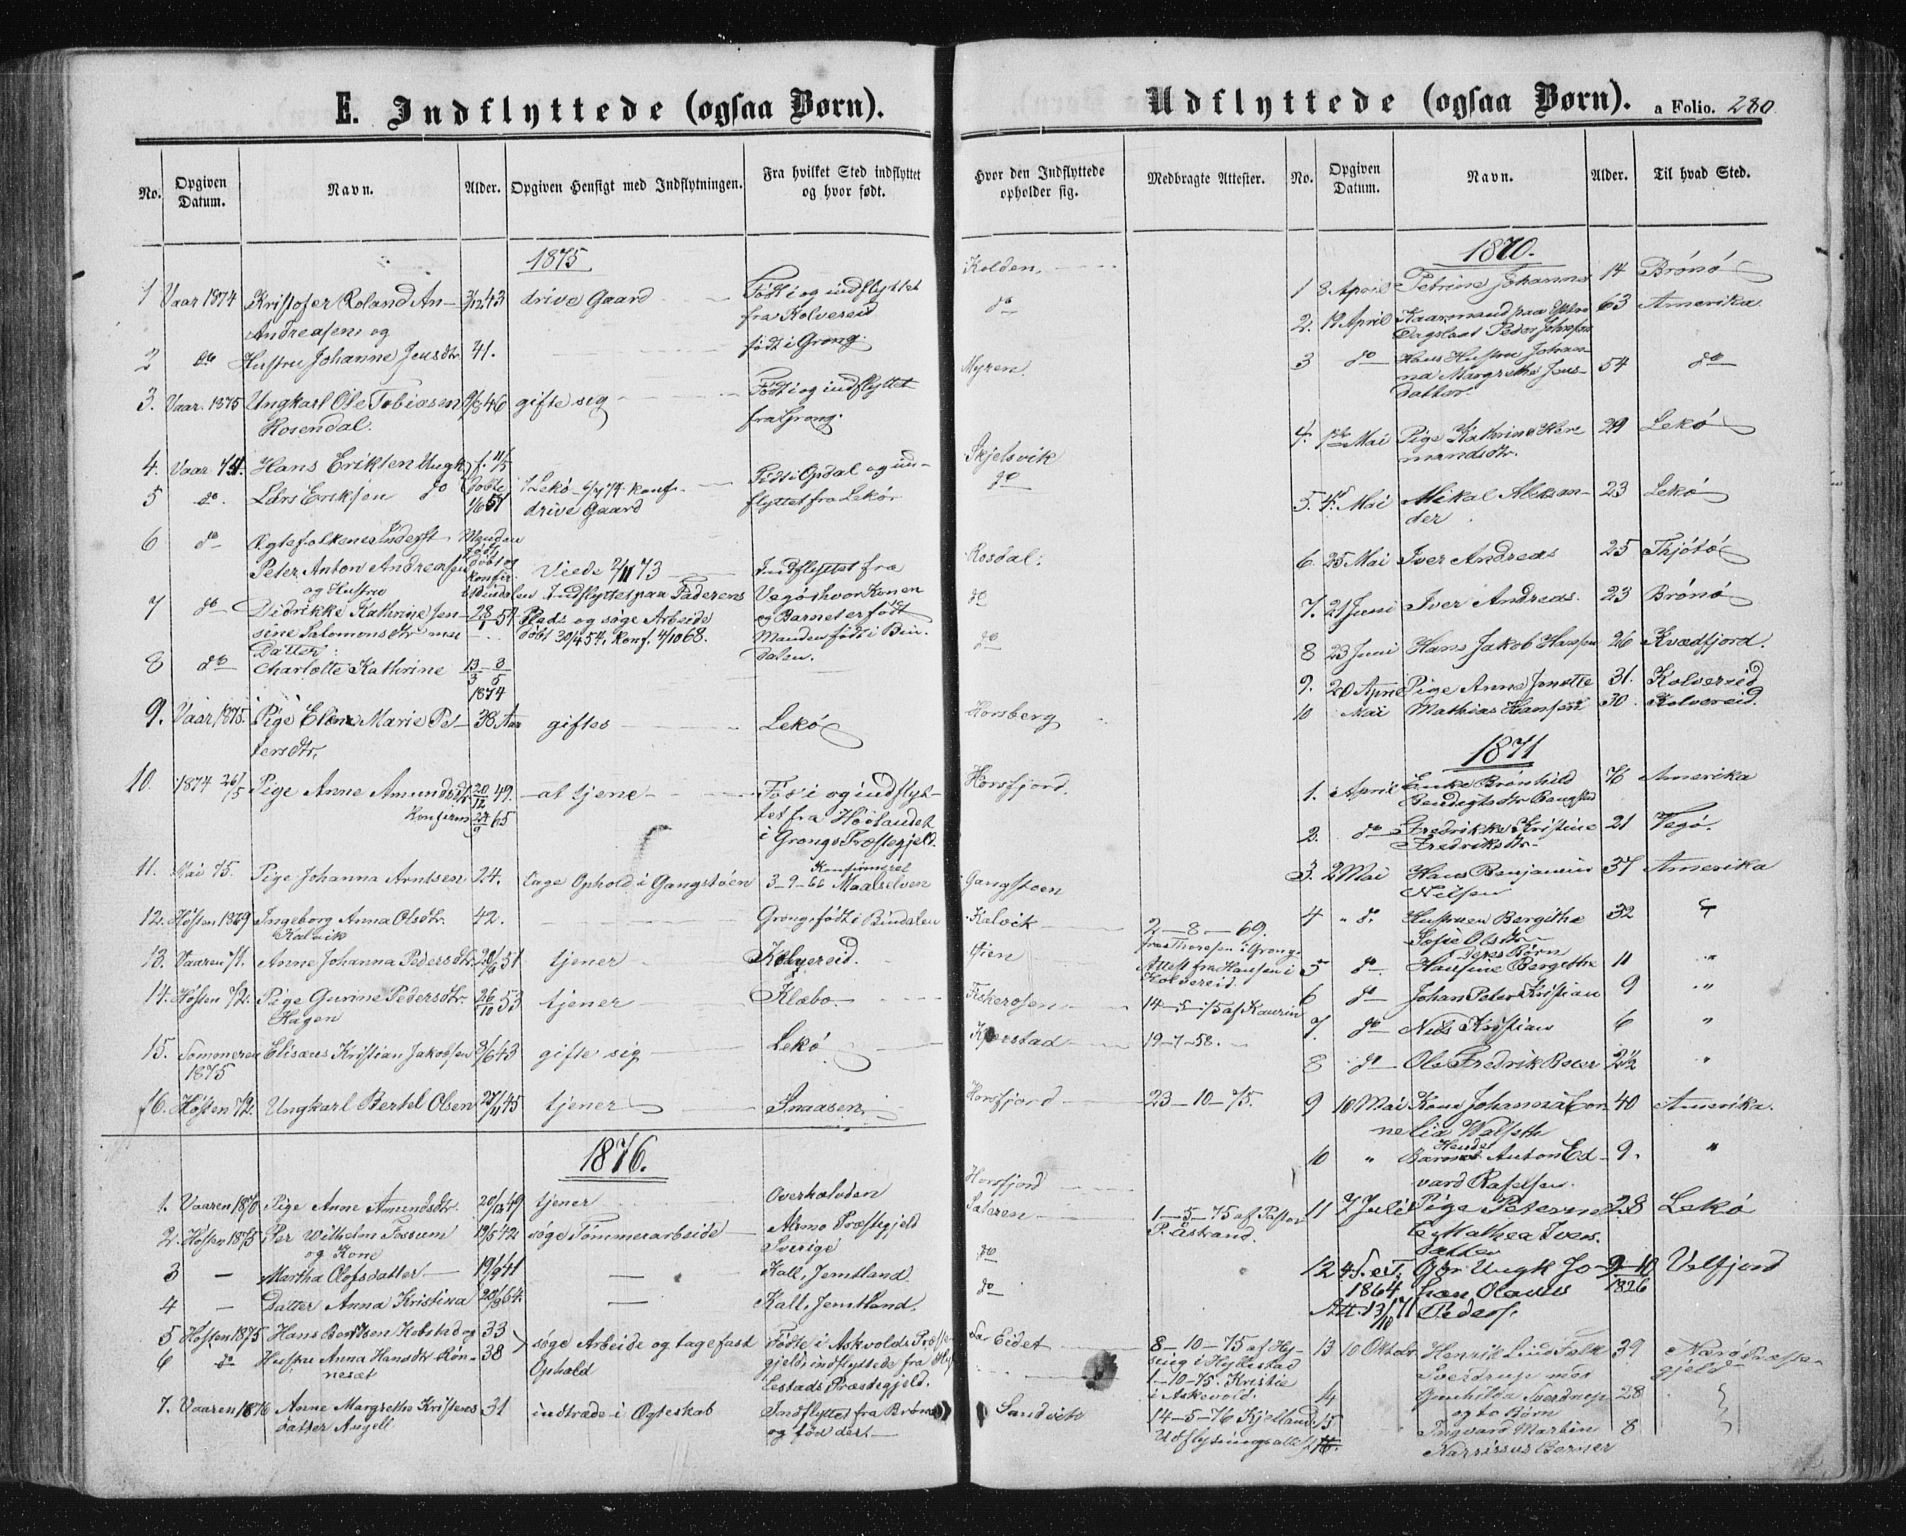 E. Indflyttede (ogsaa Børn).
Udflyttede (ogsaa Børn).
a Folio. 280
No.
Opgiven Datum.
Navn.
Alder.
Opgiven Hensigt med Indflytningen.
Fra hvilket Sted indflyttet og hvor født.
Hvor den Indflyttede opholder sig.
Medbragte Attester.
No.
Opgiven Datum.
Navn.
Alder.
Til hvad Sted.
1875
1 Vaar 1874 Kristofer Roland An- 43 drive Gaard Født i og indflyttet Kolden.
Andreasen og fra Kolvereid do
2 do Hustru Johanne Jensdtr. 41. født i Grong.
3. Vaar 1875 Ungkarl Ole Tobiasen 46 gifte sig Født i og indflyttet Myren.
Rosendal. fra Grong.
4. Vaar 74. Hans Eriksen Ungk. Født i Opdal og ind- Skjelsvik
5 do. Lars Eriksen do drive Gaard flyttet fra Lekø do
6 do Ægtefolkene Inderst Manden
Peter Anton Andreasen Viede 2/11 73 Indflyttet fra Rosdal.
og Hustru Indflyttet paa Faderens Vegø hvor Konen
7 do Didrikke Kathrine Jen- Plads og søge Arbeide og Barnet er født do
sine Salomonsdtr. døbt 30/4 54, konf. 4/10 68. Manden født i Bin-
Datter: dalen. do
8 do Charlotte Kathrine
1874
9. Vaar 1875. Pige Elene Marie Pet- 38 Aar giftes Lekø Horsberg
tersdtr.
10. 1874 26/5 Pige Anne Amundsdtr. 20/12 49. at tjene Født i og indflyt- Horsfjord.
Konfirm. 24/9 65 tet fra Høilandet
i Grongs Præstegjeld.
11. Mai 75. Pige Johanna Arntsen 24. tage Ophold i Gangstøen Konfirmeret
3-9-66 Maalselven Gangstøen
12. Høsten 1869 Ingeborg Anna Olsdtr. 42. Grong, født i Bindalen Kalvik 2-8-69.
Kalvik fra Thoresen i Grong.
13. Vaaren 71. Anne Johanna Pedersdtr. 51 tjener Kolvereid. Øien Attest fra Hansen i
Kolvereid.
14. Høsten 72. Pige Gurine Pedersdtr. 26/10 53 tjener Klæbo. Fiskerosen 14-5-75 af Kaurin
Hagen
15. Sommeren Elisæus Kristian Jakobsen 43 gifte sig Lekø 19-7-58.
1875
16. Høsten 72. Ungkarl Bertel Olsen 27/11 45 tjener Snaasen Horsfjord 23-10-75.
1876.
1. Vaaren 1870 Pige Anne Amundsdtr. 20/12 49 tjener Overhalvden Horsfjord
2. Høsten 1875 Per Wilhelm Fossum 19/5 42 søge Tømmerarbeide Præstegjeld Saleren 1-5-75 af Pastor
og Kone Sverige do P. Åstrand.
3 — Martha Olofsdatter — 19/9 41 — Kall, Jemtland. do
4 — Datter Anna Kristina 20/9 64. — Kall, Jemtland.
5 Høsten 1875 Hans Kobstad og 33 søge Arbeide og tage fast Fødte i Askvolds Præste- Eidet 8-10-75 af Hy-
6 do Hustru Anna Hansdtr. Røn- 38 Ophold gjeld, indflyttede fra Hyl- i Hyllestad
nesæt lestads Præstegjeld. 1-10-75. Kristie
i Askevold.
7. Vaaren 1876 Anne Margrethe Kristens 31 indtræde i Ægteskab Indflyttet fra Brønø Sandvik 14-5-76 Kjelland
datter Angell og fød der. Udflytningsattest
1870.
1 8 April Petrine Johanna 14 Brønø
2. 19 April Kaarmand paa 63 Amerika
Peder Johnsen
3 do Hans Hustru Johan- 54 do
na Margrethe Jens-
datter.
4. Mai Pige Kathrine Her- 29 Lekø
mandsdtr.
5. 4. Mai Mikal Aleksan- 23 Lekø
der
6. 25 Mai Iver Andreas 25 Thjøtø
7. 21 Juni Iver Andreas 23 Brønø
8 23 Juni Hans Jakob Hansen 26 Kvædfjord.
9. 20 April Pige Anne Jonette 31. Kolvereid
10 Mai Mathias Hansen 30. Kolvereid.
1871
1. April Enke Brønhild 76 Amerika
Bendigtsdtr.
2. do Fredrikke Kristine 21 Vegø.
Fredriksdtr.
3. 2 Mai Hans Benjamin 37 Amerika
Nilsen
4 " d. Hustruen Bergithe 32 "
Sofie Olsdtr.
deres Børn
5 do Hansine Bergithe 11 "
6 do Johan Peter Kristian 9 "
7. do Nils Kristian 6 "
8 do Ole Fredrik Peter 2½ "
9 10 Mai Kone Johanna Cor- 40 Amerika.
nelia Walseth
10 " Hendes
Barn Anton Ed- 9. "
vard
11 7 Juli Pige Petern- 28 Lekø
e Mathea Ivers-
datter
12 4 Ungk Jo- 9-10 Velfjord
1864 han Olaus 1826
Att. 13/10 71 Peders.
13 10 Oktbr Henrik Lind Falk 39 Nærø Præste-
Sverdrup med gjeld
14 Gunhilda Sverdrup 28
og to Børn
15 Ingvard Martin 8
16. Narsissus Berner